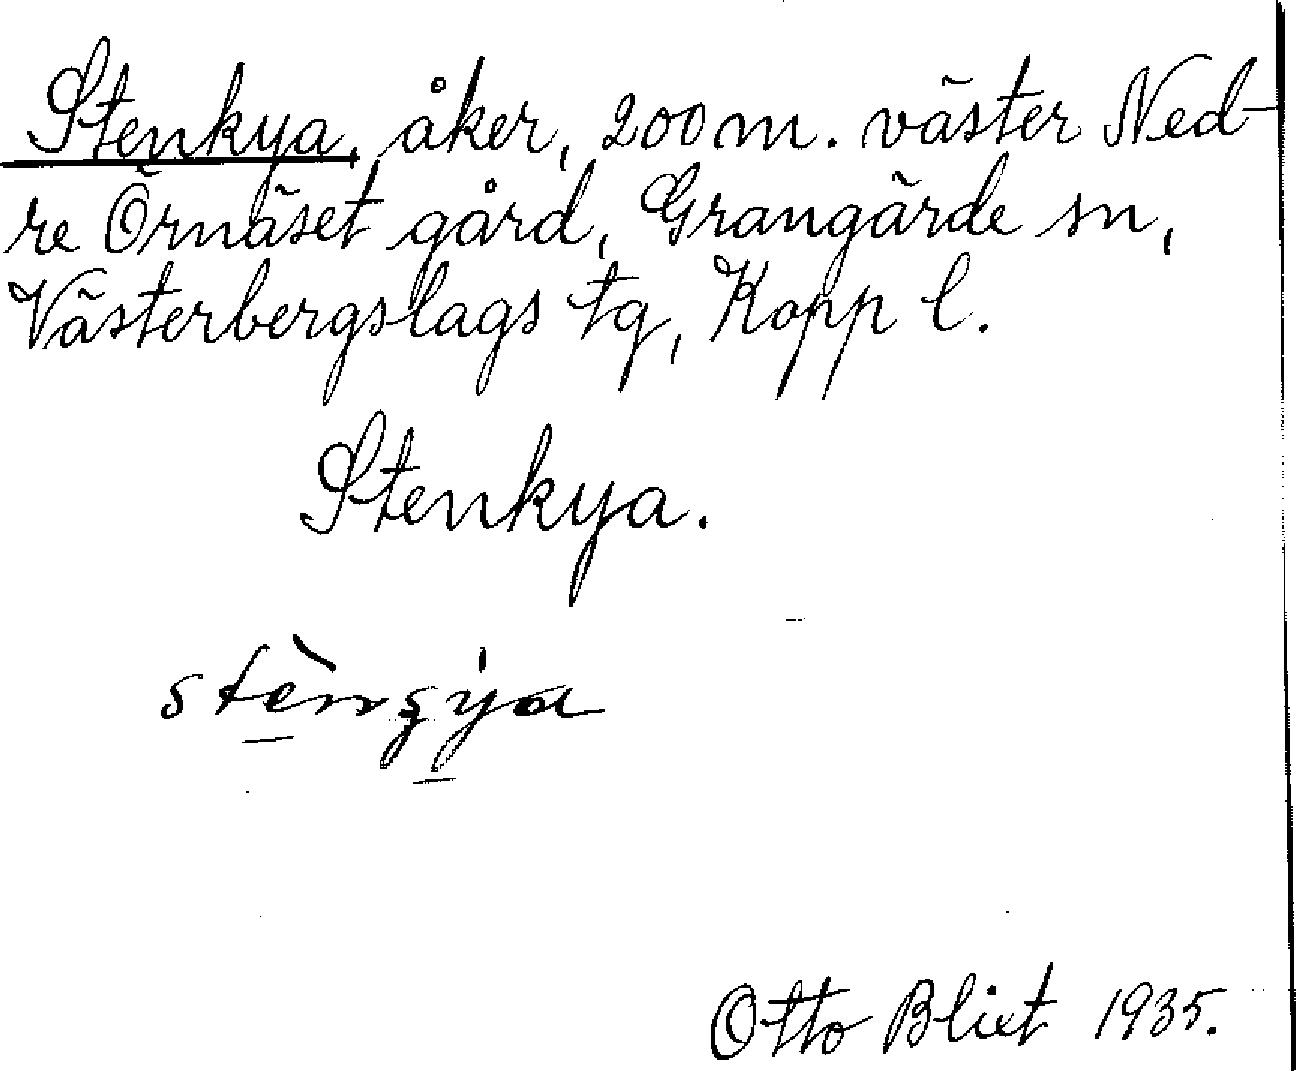 Stenkya, åker, 200 m. väster Ned-
re Örnäset gård, Grangärde sn,
Västerbergslags tg, Kopp l.
Stenkya.
Otto Blixt 1935.